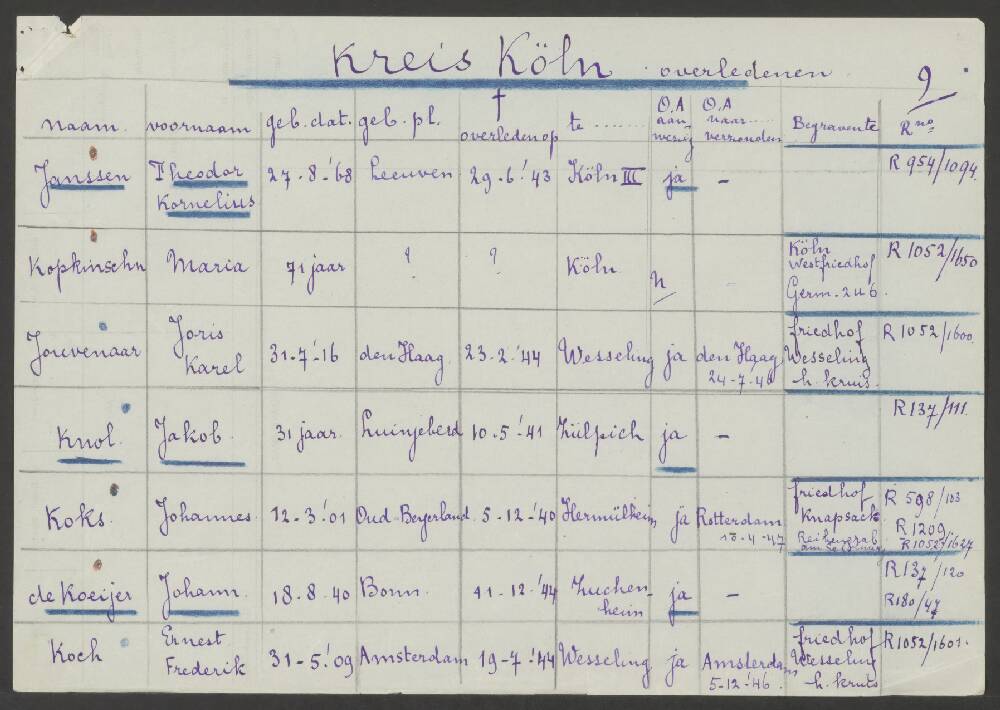 Kreis Köln overledenen 9
naam. voornaam geb. dat. geb. pl. † overleden op te ...... O.A aanwezig O.A naar.... verzonden Begraven te R no.
Janssen Theodor Kornelius 27-8-'68 Leeuwen 29-6-'43 Köln III ja - R 954/1094
Kopkinsehn Maria 71 jaar ? ? Köln N - Köln Westfriedhof Germ. 246. R 1052/1650
Jouvenaar Joris Karel 31-7-'16 den Haag 23-2-'44 Wesseling ja den Haag 24-7-46 friedhof Wesseling h. kruis. R 1052/1600
Knol. Jakob. 31 jaar. Luinjeberd 10-5-'41 Zülpich ja - R137/111.
Koks. Johannes. 12-3-'01 Oud-Beyerland 5-12-'40 Hermülheim ja Rotterdam 18-4-47 friedhof Knapsack Reihengrab R 598/103 R 1209. R 1052/1627
de Koeijer Johann. 18-8-40 Bonn. 11-12-'44 Zuchenheim ja - R137/120 R180/47
Koch Ernest Frederik 31-5-'09 Amsterdam 19-7-'44 Wesseling ja Amsterdam 5-12-'46. friedhof Wesseling h. kruis R1052/1601.